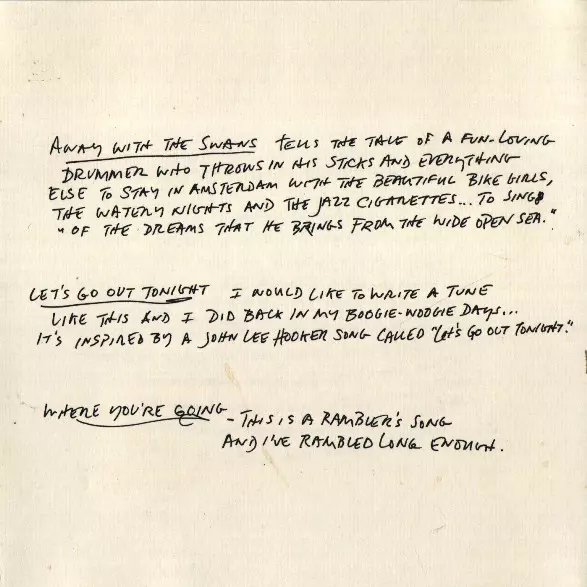 AWAY WITH THE SWANS TELLS THE TALE OF A FUN-LOVING
DRUMMER WHO THROWS IN HIS STICKS AND EVERYTHING
ELSE TO STAY IN AMSTERDAM WITH THE BEAUTIFUL BIKE GIRLS,
THE WATERY NIGHTS AND THE JAZZ CIGARETTES... TO SING
"OF THE DREAMS THAT HE BRINGS FROM THE WIDE OPEN SEA."
LET'S GO OUT TONIGHT I WOULD LIKE TO WRITE A TUNE
LIKE THIS AND I DID BACK IN MY BOOGIE-WOOGIE DAYS...
IT'S INSPIRED BY A JOHN LEE HOOKER SONG CALLED "LET'S GO OUT TONIGHT."
WHERE YOU'RE GOING - THIS IS A RAMBLER'S SONG
AND I'VE RAMBLED LONG ENOUGH.